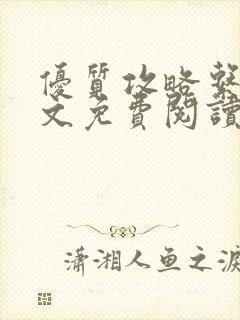 優質攻略
文免費閱讀
瀟湘人鱼之淚